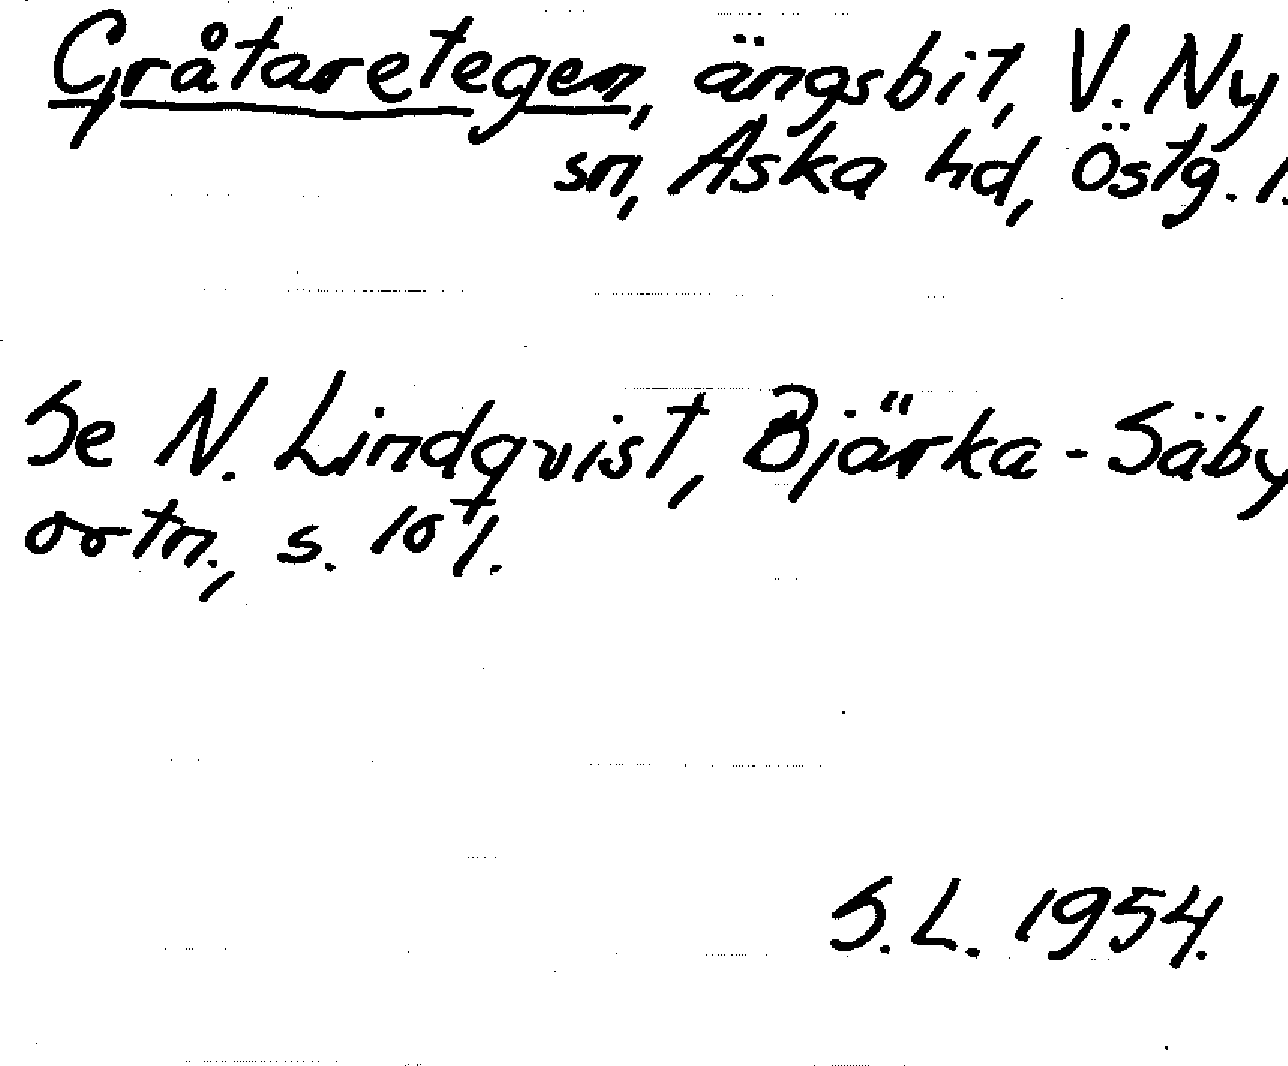 Gråtaretegen, ängsbit, V. Ny
sn, Aska hd, Östg. l.
Se N. Lindqvist, Bjärka-Säby
ortn., s. 107.
S. L. 1954.